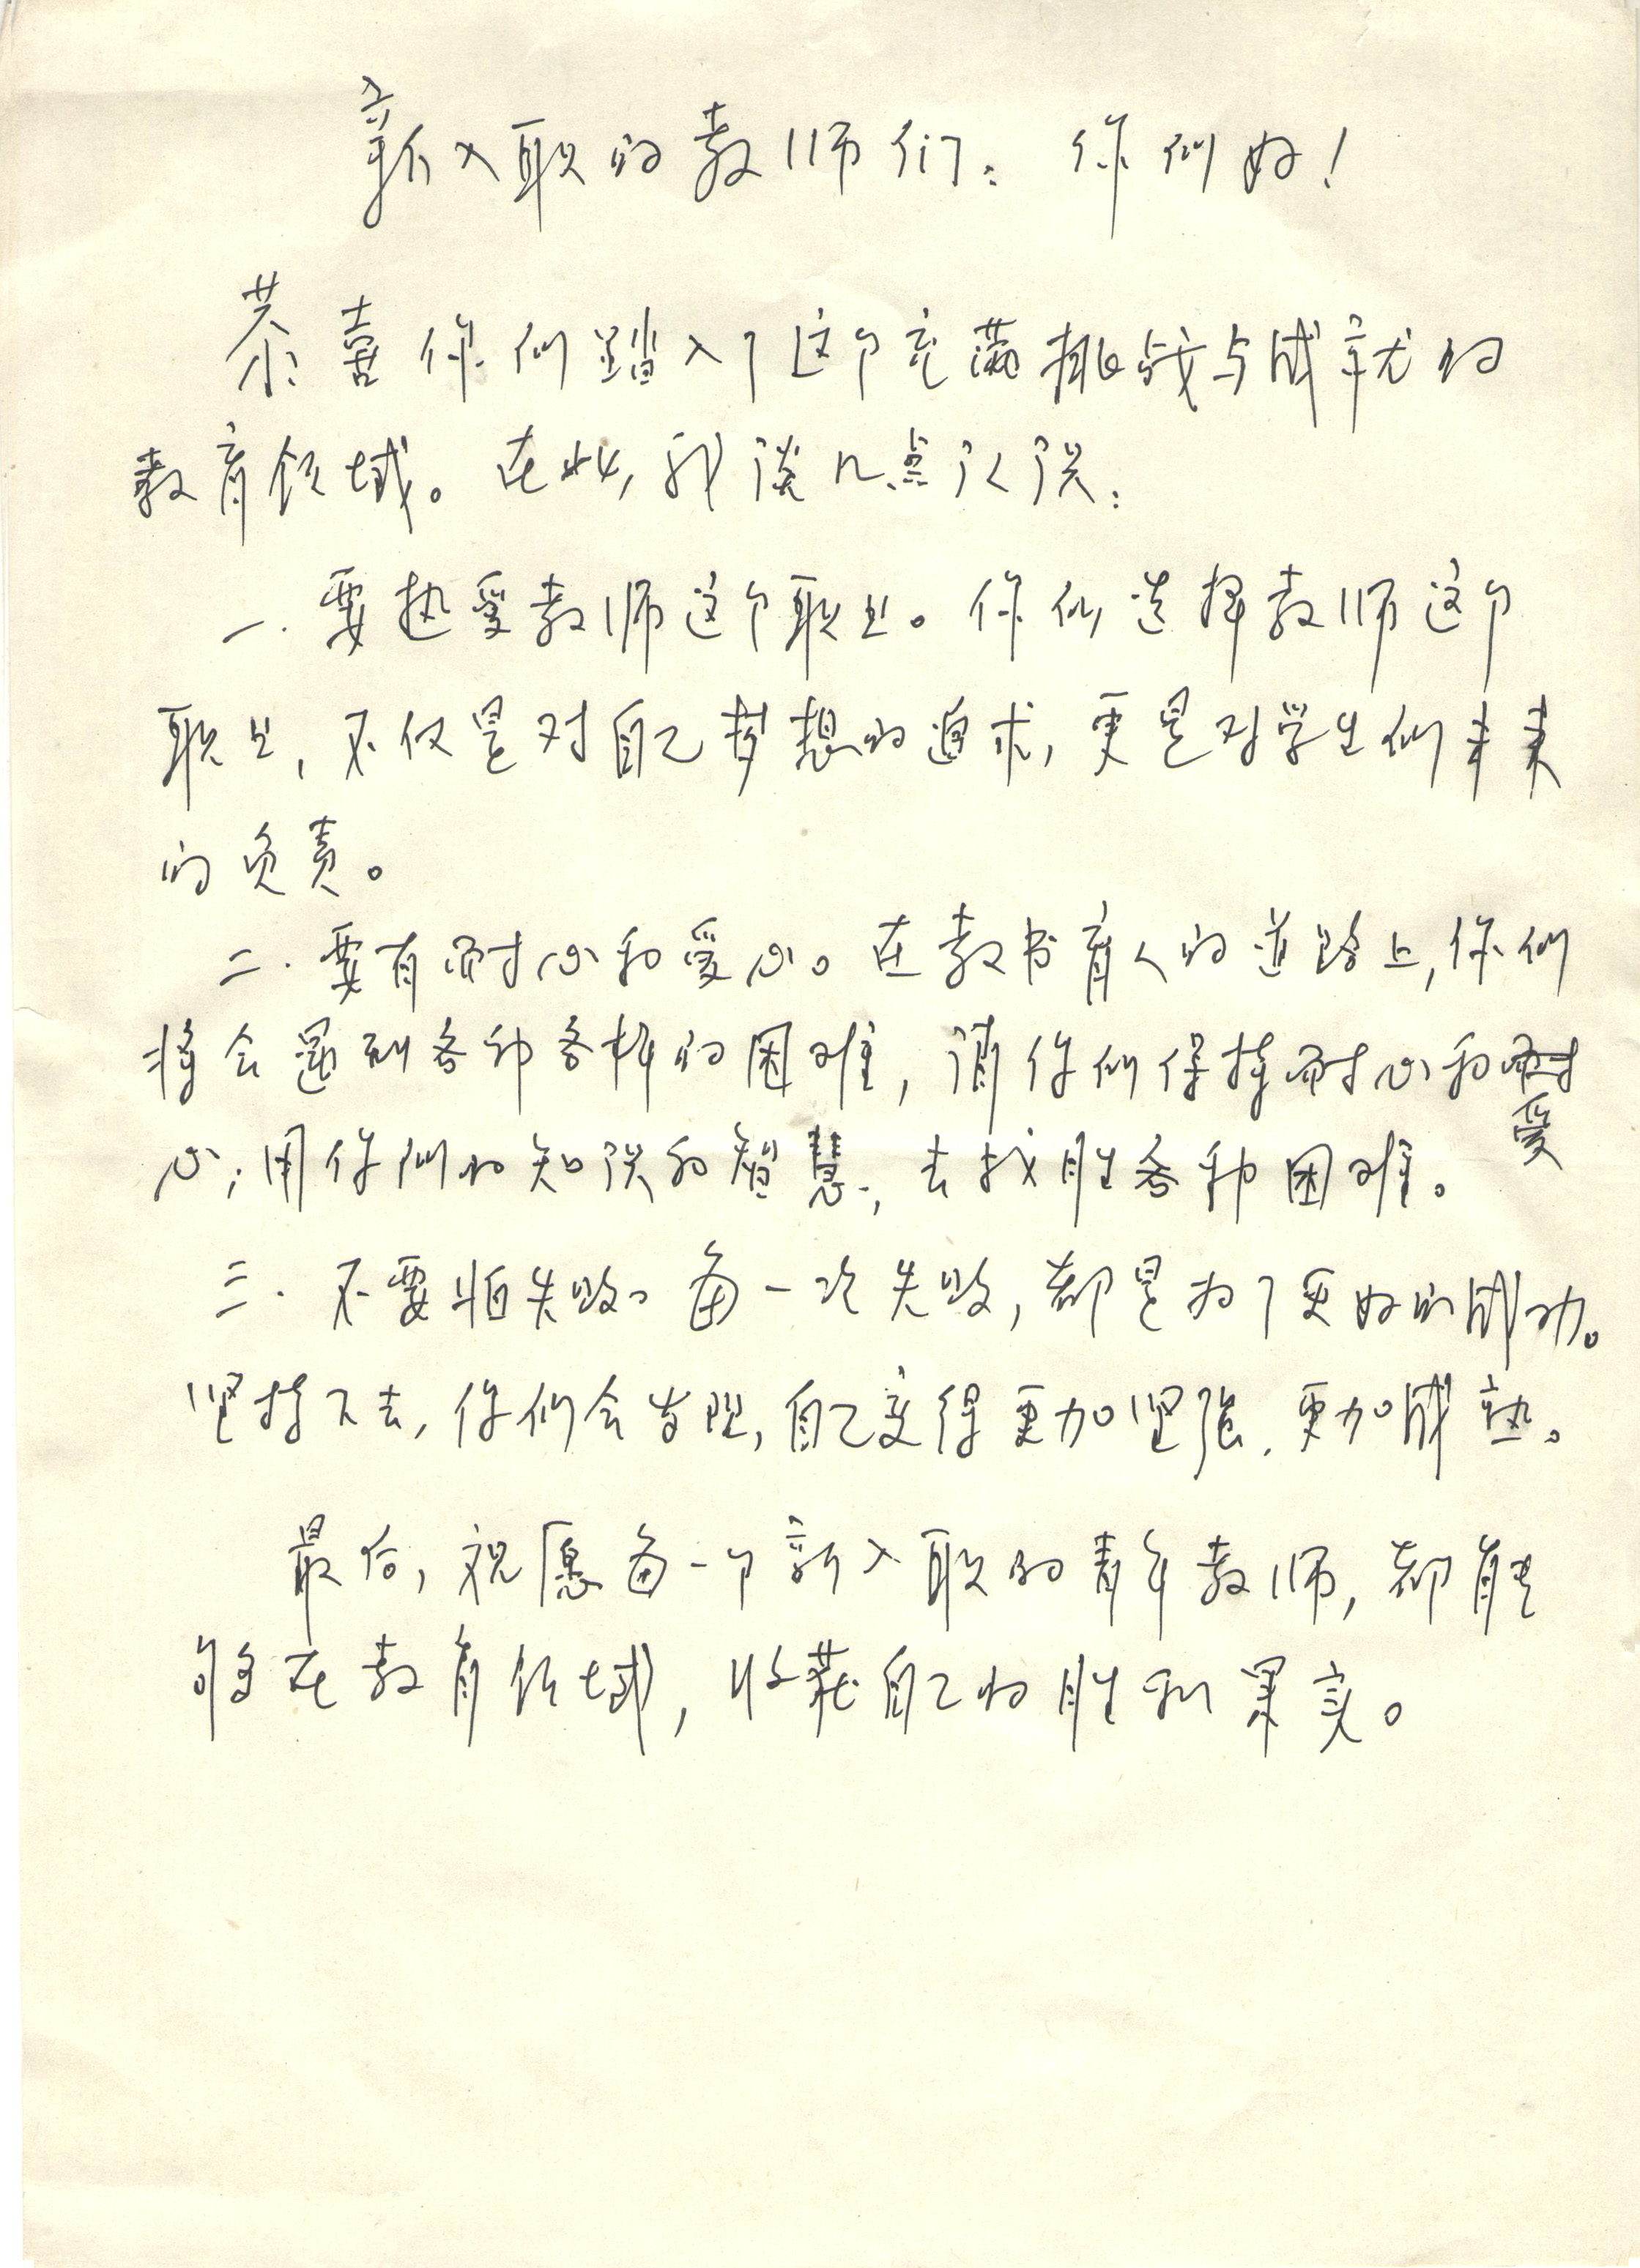 新入职的教师们：你们好！
恭喜你们踏入了这个充满挑战与成就的
教育领域。在此，我谈几点认识：
一.要热爱教师这个职业。你们选择教师这个
职业，不仅是对自己梦想的追求，更是对学生们未来
的负责。
二.要有耐心和爱心。在教书育人的道路上，你们
将会遇到各种各样的困难，请你们保持耐心和爱
心；用你们的知识和智慧，去战胜各种困难。
三.不要怕失败。每一次失败，都是为了更好的成功。
坚持下去，你们会发现，自己变得更加坚强.更加成熟。
最后，祝愿每一个新入职的青年教师，都能
够在教育领域，收获自己的胜利果实。